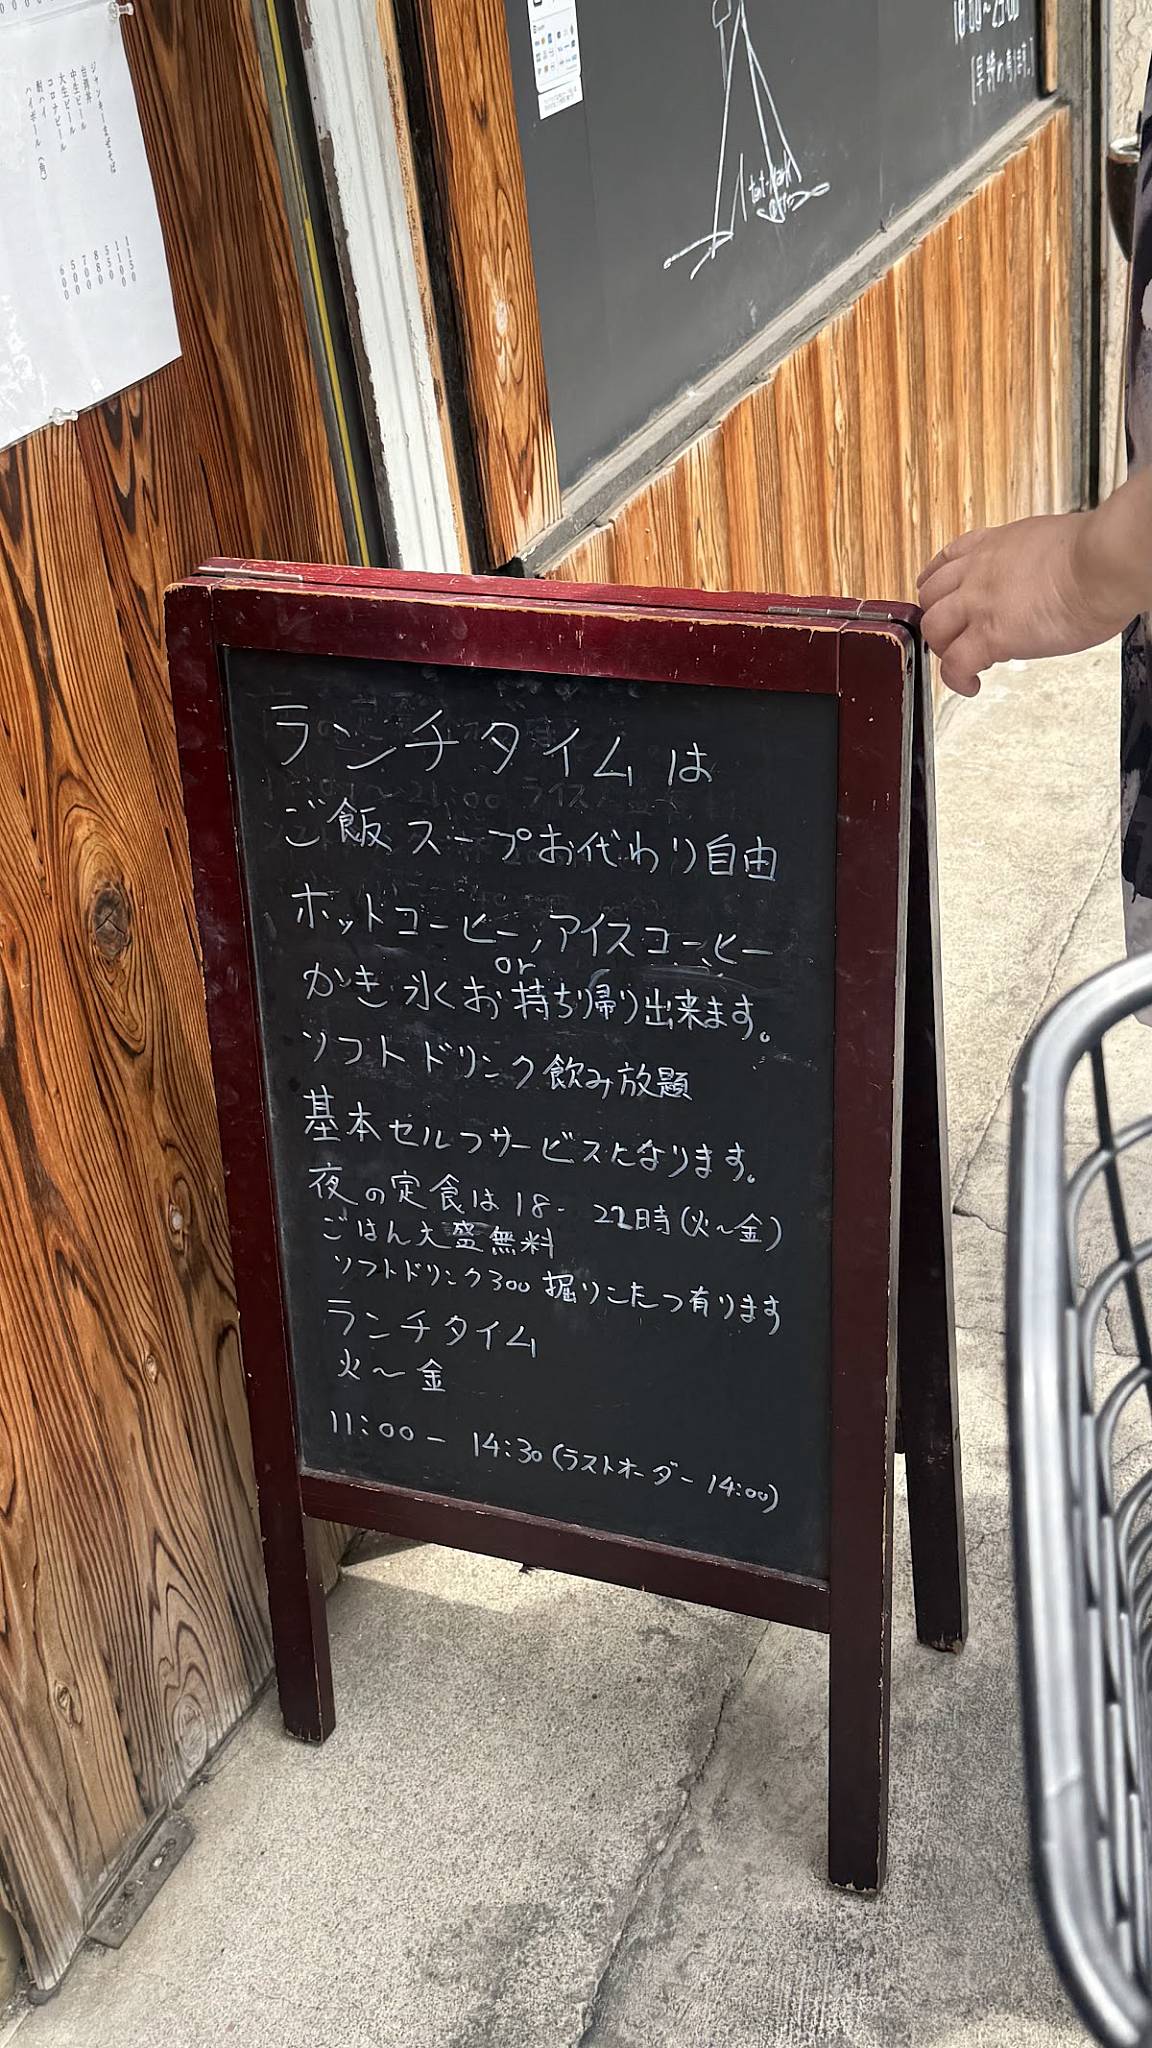 ジャンキーまぜそば 1150
台湾丼
中生ビール
大生ビール
コロナビール
酎ハイ
ハイボール（角）
[早終わり有ります。]
ランチタイムは
ご飯スープお代わり自由
ホットコーヒー,アイスコーヒー
or
かき氷くお持ち帰り出来ます。
ソフトドリンク飲み放題
基本セルフサービスになります。
夜の定食は18-22時(火〜金)
ごはん大盛無料
ソフトドリンク300 掘りこたつ有ります
ランチタイム
火〜金
11:00-14:30(ラストオーダー14:00)